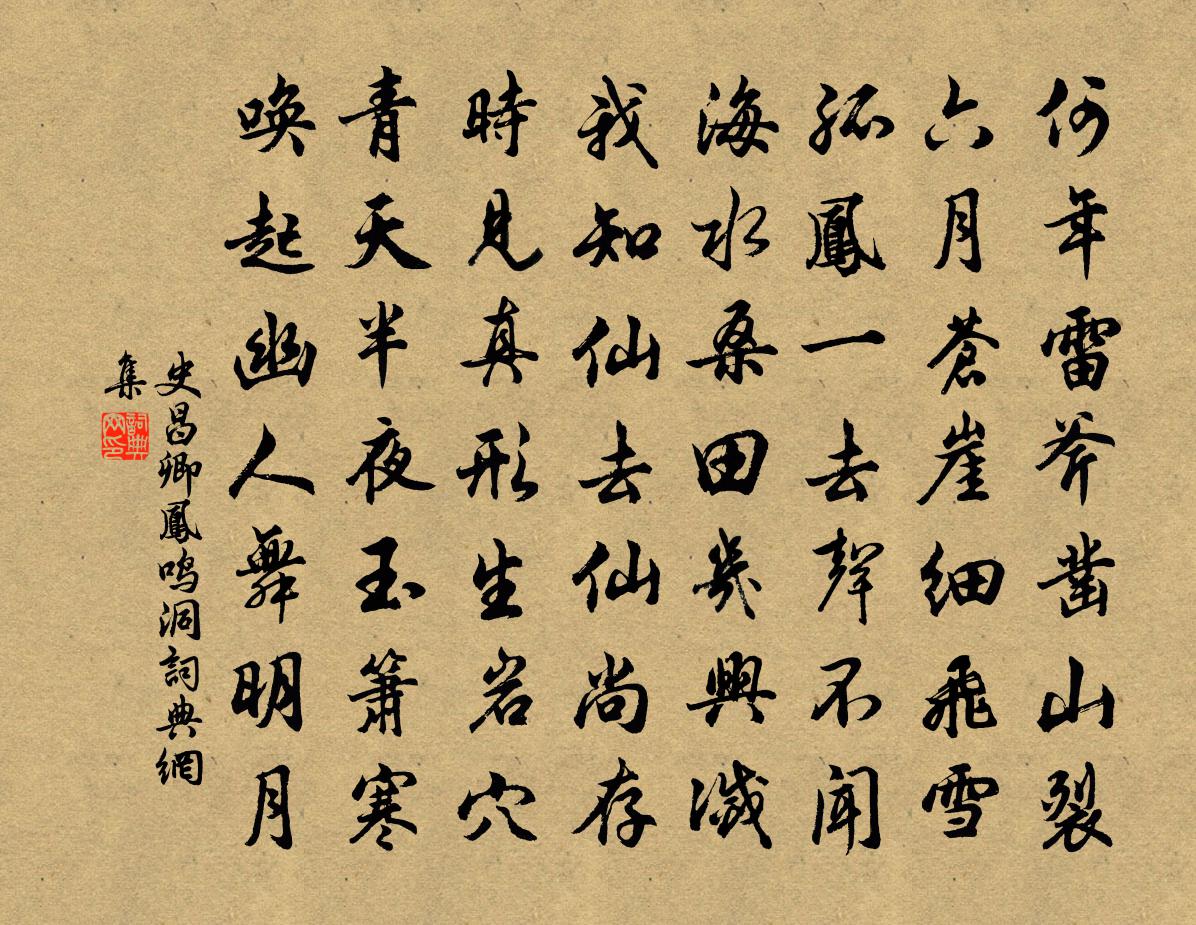 何年雷斧凿山裂
六月蒼崖細飛雪
孤鳳一去聲不聞
海水桑田幾興滅
我知仙去仙尚存
時見真形生岩穴
青天半夜玉簫寒
喚起幽人舞明月
史昌卿鳳鸣洞詞典網
集
詞典
网印